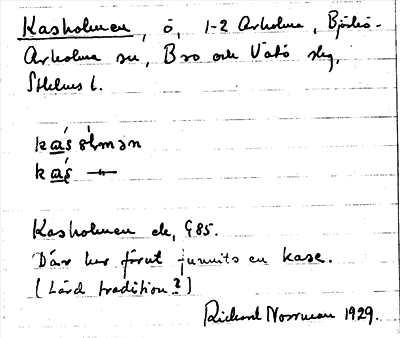 Kasholmen, ö, 1-2 Arholma, Björkö-
Arholma sn, Bro och Vätö slg,
Sthlms l.
kas
Kasholmen ek, G85.
Där har förut funnits en kase.
(Lärd tradition?)
Rickard Norrman 1929.